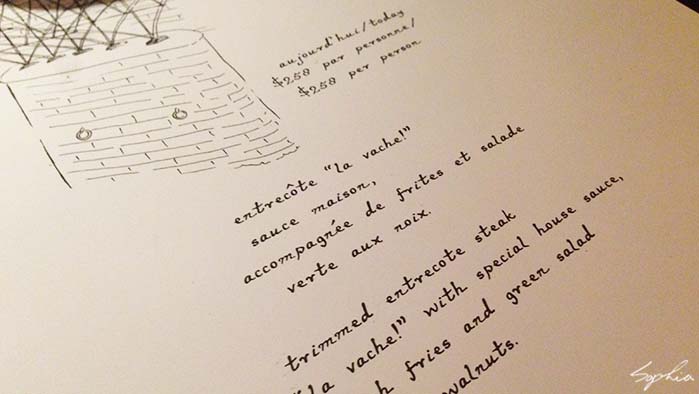 aujourd'hui/today
$258 par personne/
$258 per person
entrecôte "la vache!"
sauce maison,
accompagnée de frites et salade
verte aux noix.
trimmed entrecote steak
"la vache!" with special house sauce,
fries and green salad
walnuts.
Sophia